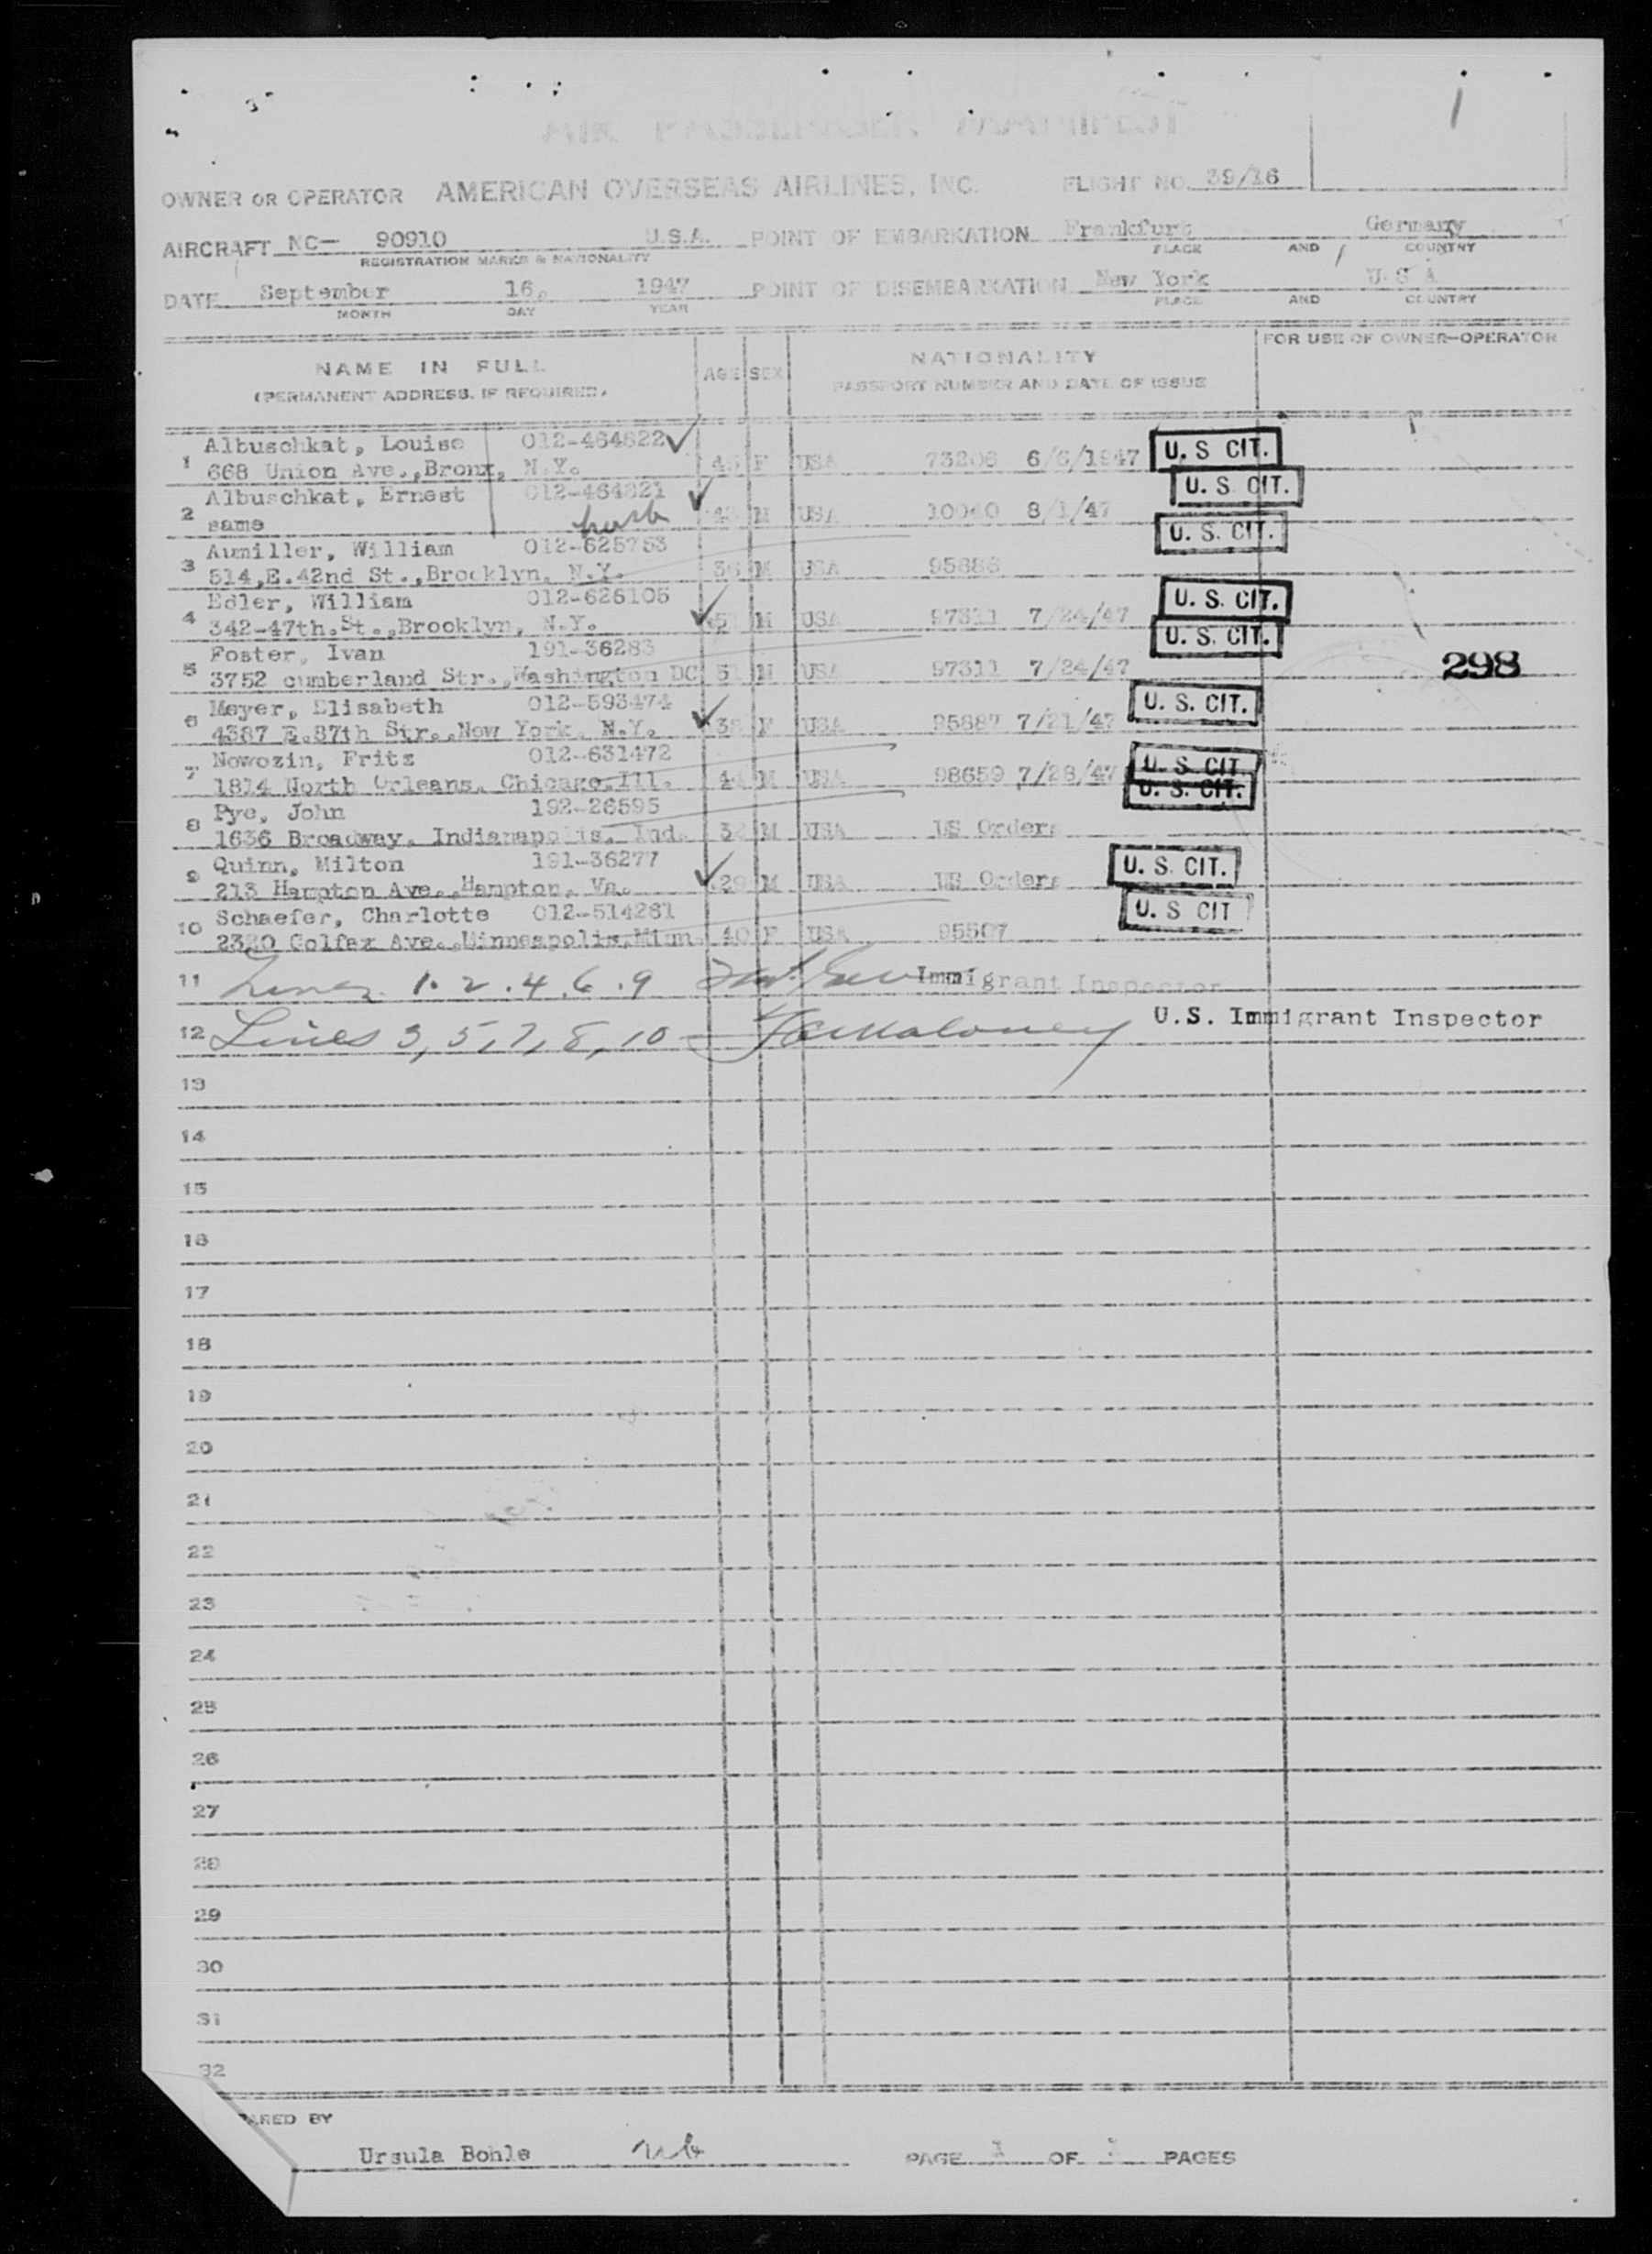 AIR PASSENGER MANIFEST
OWNER OR OPERATOR AMERICAN OVERSEAS AIRLINES, INC. FLIGHT NO. 39/16
AIRCRAFT NC- 90910 U.S.A. POINT OF EMBARKATION Frankfurt Germany
REGISTRATION MARKS & NATIONALITY PLACE AND COUNTRY
DATE September 16, 1947 POINT OF DISEMBARKATION New York U S A
MONTH DAY YEAR PLACE AND COUNTRY
NAME IN FULL AGE SEX NATIONALITY FOR USE OF OWNER-OPERATOR
(PERMANENT ADDRESS, IF REQUIRED) PASSPORT NUMBER AND DATE OF ISSUE
Albuschkat, Louise 012-464822
1 668 Union Ave., Bronx, N.Y. F USA 73206 6/6/1947 U. S CIT.
Albuschkat, Ernest 012-464821 U. S. CIT.
2 same M USA 8/1/47
Aumiller, William 012-625753 U. S. CIT.
3 514,E.42nd St.,Brooklyn, N.Y. 36 M USA 95886
Edler, William 012-626105 U. S. CIT.
4 342-47th.St.,Brooklyn, N.Y. M USA 97311 7/24/47
Foster, Ivan 191-36283 U. S. CIT.
5 3752 cumberland Str.,Washington DC 51 M USA 97311 7/24/47 298
Meyer, Elisabeth 012-593474 U. S. CIT.
6 4387 E.87th Str.,New York, N.Y. 38 F USA 95887 7/21/47
Nowozin, Fritz 012-631472 U. S. CIT.
7 1814 North Orleans, Chicago,Ill. 44 M USA 98659 7/28/47
Pye, John 192-26595 U. S. CIT.
8 1636 Broadway, Indianapolis, Ind. 32 M USA US Orders
Quinn, Milton 191-36277 U. S. CIT.
9 213 Hampton Ave., Hampton, Va. 29 M USA US Orders
Schaefer, Charlotte 012-514281 U. S CIT
10 2320 Colfax Ave.,Minneapolis,Minn. 40 F USA 95507
11 Lines 1.2.4.6.9 Immigrant Inspector
12 Lines 3,5,7,8,10 Maloney U.S. Immigrant Inspector
13
14
15
16
17
18
19
20
21
22
23
24
25
26
27
28
29
30
31
32
ARED BY
Ursula Bohle PAGE 1 OF PAGES